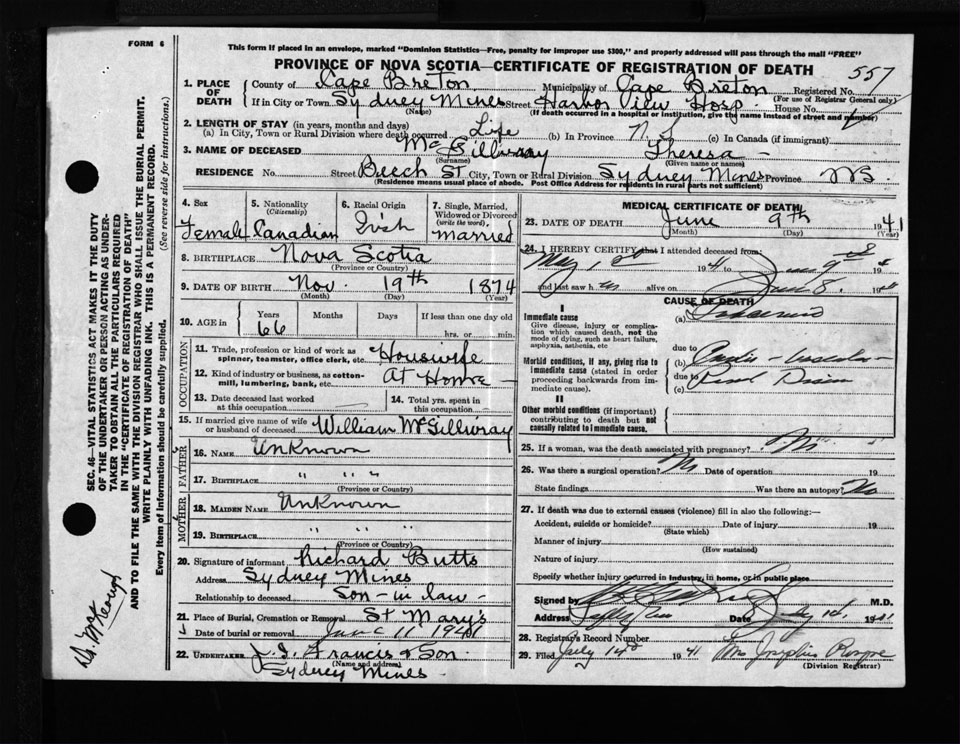 FORM 6
This form if placed in an envelope, marked "Dominion Statistics—Free, penalty for improper use $300," and properly addressed will pass through the mail "FREE"
PROVINCE OF NOVA SCOTIA—CERTIFICATE OF REGISTRATION OF DEATH
557
1. PLACE OF DEATH
County of Cape Breton Municipality of Cape Breton Registered No.
(For use of Registrar General only)
If in City or Town Sydney Mines Street Harbor View Hosp. House No.
(Name) (If death occurred in a hospital or institution, give the name instead of street and number)
2. LENGTH OF STAY (in years, months and days)
(a) In City, Town or Rural Division where death occurred Life (b) In Province N.S. (c) In Canada (if immigrant)
3. NAME OF DECEASED McGillivray Theresa -
(Surname) (Given name or names)
RESIDENCE No. Street Beech St City, Town or Rural Division Sydney Mines Province N.S.
(Residence means usual place of abode. Post Office Address for residents in rural parts not sufficient)
4. Sex Female
5. Nationality (Citizenship) Canadian
6. Racial Origin Irish
7. Single, Married, Widowed or Divorced (write the word) Married
8. BIRTHPLACE Nova Scotia
(Province or Country)
9. DATE OF BIRTH Nov. 19th 1874
(Month) (Day) (Year)
10. AGE in Years 66 Months Days If less than one day old
hrs. or min.
OCCUPATION
11. Trade, profession or kind of work as spinner, teamster, office clerk, etc. Housewife
12. Kind of industry or business, as cotton-mill, lumbering, bank, etc. At Home -
13. Date deceased last worked at this occupation
14. Total yrs. spent in this occupation
15. If married give name of wife or husband of deceased William McGillivray
FATHER
16. NAME Unknown
17. BIRTHPLACE " " "
(Province or Country)
MOTHER
18. MAIDEN NAME Unknown
19. BIRTHPLACE " " "
(Province or Country)
20. Signature of informant Richard Butts
Address Sydney Mines
Relationship to deceased Son-in law -
21. Place of Burial, Cremation or Removal St Mary's
Date of burial or removal June 11 1941
22. UNDERTAKER J. J. Francis & Son
(Name and address)
Sydney Mines -
MEDICAL CERTIFICATE OF DEATH
23. DATE OF DEATH June 9th 1941
(Month) (Day) (Year)
24. I HEREBY CERTIFY that I attended deceased from:
May 19 41 to June 9th 19
and last saw h alive on June 8. 19
CAUSE OF DEATH
I
Immediate cause
Give disease, injury or complication which caused death, not the mode of dying, such as heart failure, asphyxia, asthenia, etc
(a)
due to
Morbid conditions, if any, giving rise to immediate cause (stated in order proceeding backwards from immediate cause).
(b) Cardio-vascular-
due to
(c) Renal Disease
II
Other morbid conditions (if important) contributing to death but not causally related to immediate cause.
25. If a woman, was the death associated with pregnancy? No
26. Was there a surgical operation? No Date of operation 19
State findings Was there an autopsy? No
27. If death was due to external causes (violence) fill in also the following:—
Accident, suicide or homicide? Date of injury 19
(State which)
Manner of injury
(How sustained)
Nature of injury
Specify whether injury occurred in industry, in home, or in public place
Signed by M.D.
Address Date 19
28. Registrar's Record Number
29. Filed July 14th 1941 Mrs Josephine
(Division Registrar)
SEC. 46—VITAL STATISTICS ACT MAKES IT THE DUTY
OF THE UNDERTAKER OR PERSON ACTING AS UNDER-
TAKER TO OBTAIN ALL THE PARTICULARS REQUIRED
IN THE "CERTIFICATE OF REGISTRATION OF DEATH"
AND TO FILE THE SAME WITH THE DIVISION REGISTRAR WHO SHALL ISSUE THE BURIAL PERMIT.
WRITE PLAINLY WITH UNFADING INK. THIS IS A PERMANENT RECORD.
Every item of information should be carefully supplied. (See reverse side for instructions.)